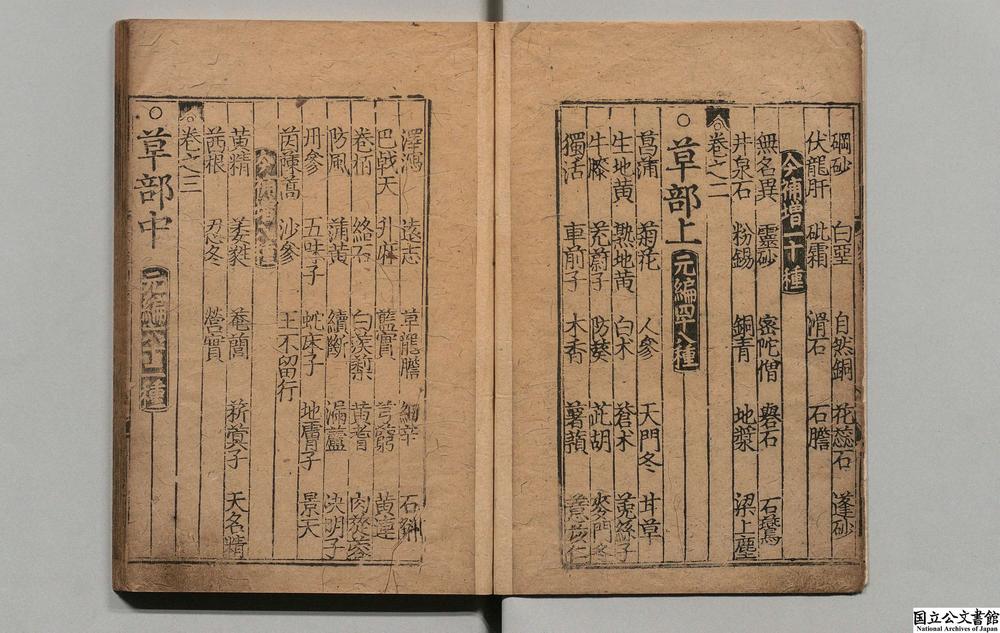 硇砂 白堊 自然銅 花蕊石 蓬砂
伏龍肝 砒霜 滑石 石膽
今補増一十種
無名異 靈砂 密陀僧 礜石 石鷰
井泉石 粉錫 銅青 地漿 梁上塵
卷之二
○草部上 元編四十八種
菖蒲 菊花 人參 天門冬 甘草
生地黄 熟地黄 白朮 蒼朮 菟絲子
牛膝 茺蔚子 防葵 茈胡 麥門冬
獨活 車前子 木香 薯蕷 薏苡仁
澤瀉 遠志 草龍膽 細辛 石斛
巴戟天 升麻 藍實 芎藭 黄連
卷栢 絡石 白蒺䔧 黄耆 肉蓯蓉
防風 蒲黄 續斷 漏蘆 决明子
丹參 五味子 蛇床子 地膚子 景天
茵蔯蒿 沙參 王不留行
今補増 種
黄精 菴䕡 菥蓂子 天名精
茜根 忍冬 營實
卷之三
○草部中 元編六十二種
国立公文書館
National Archives of Japan